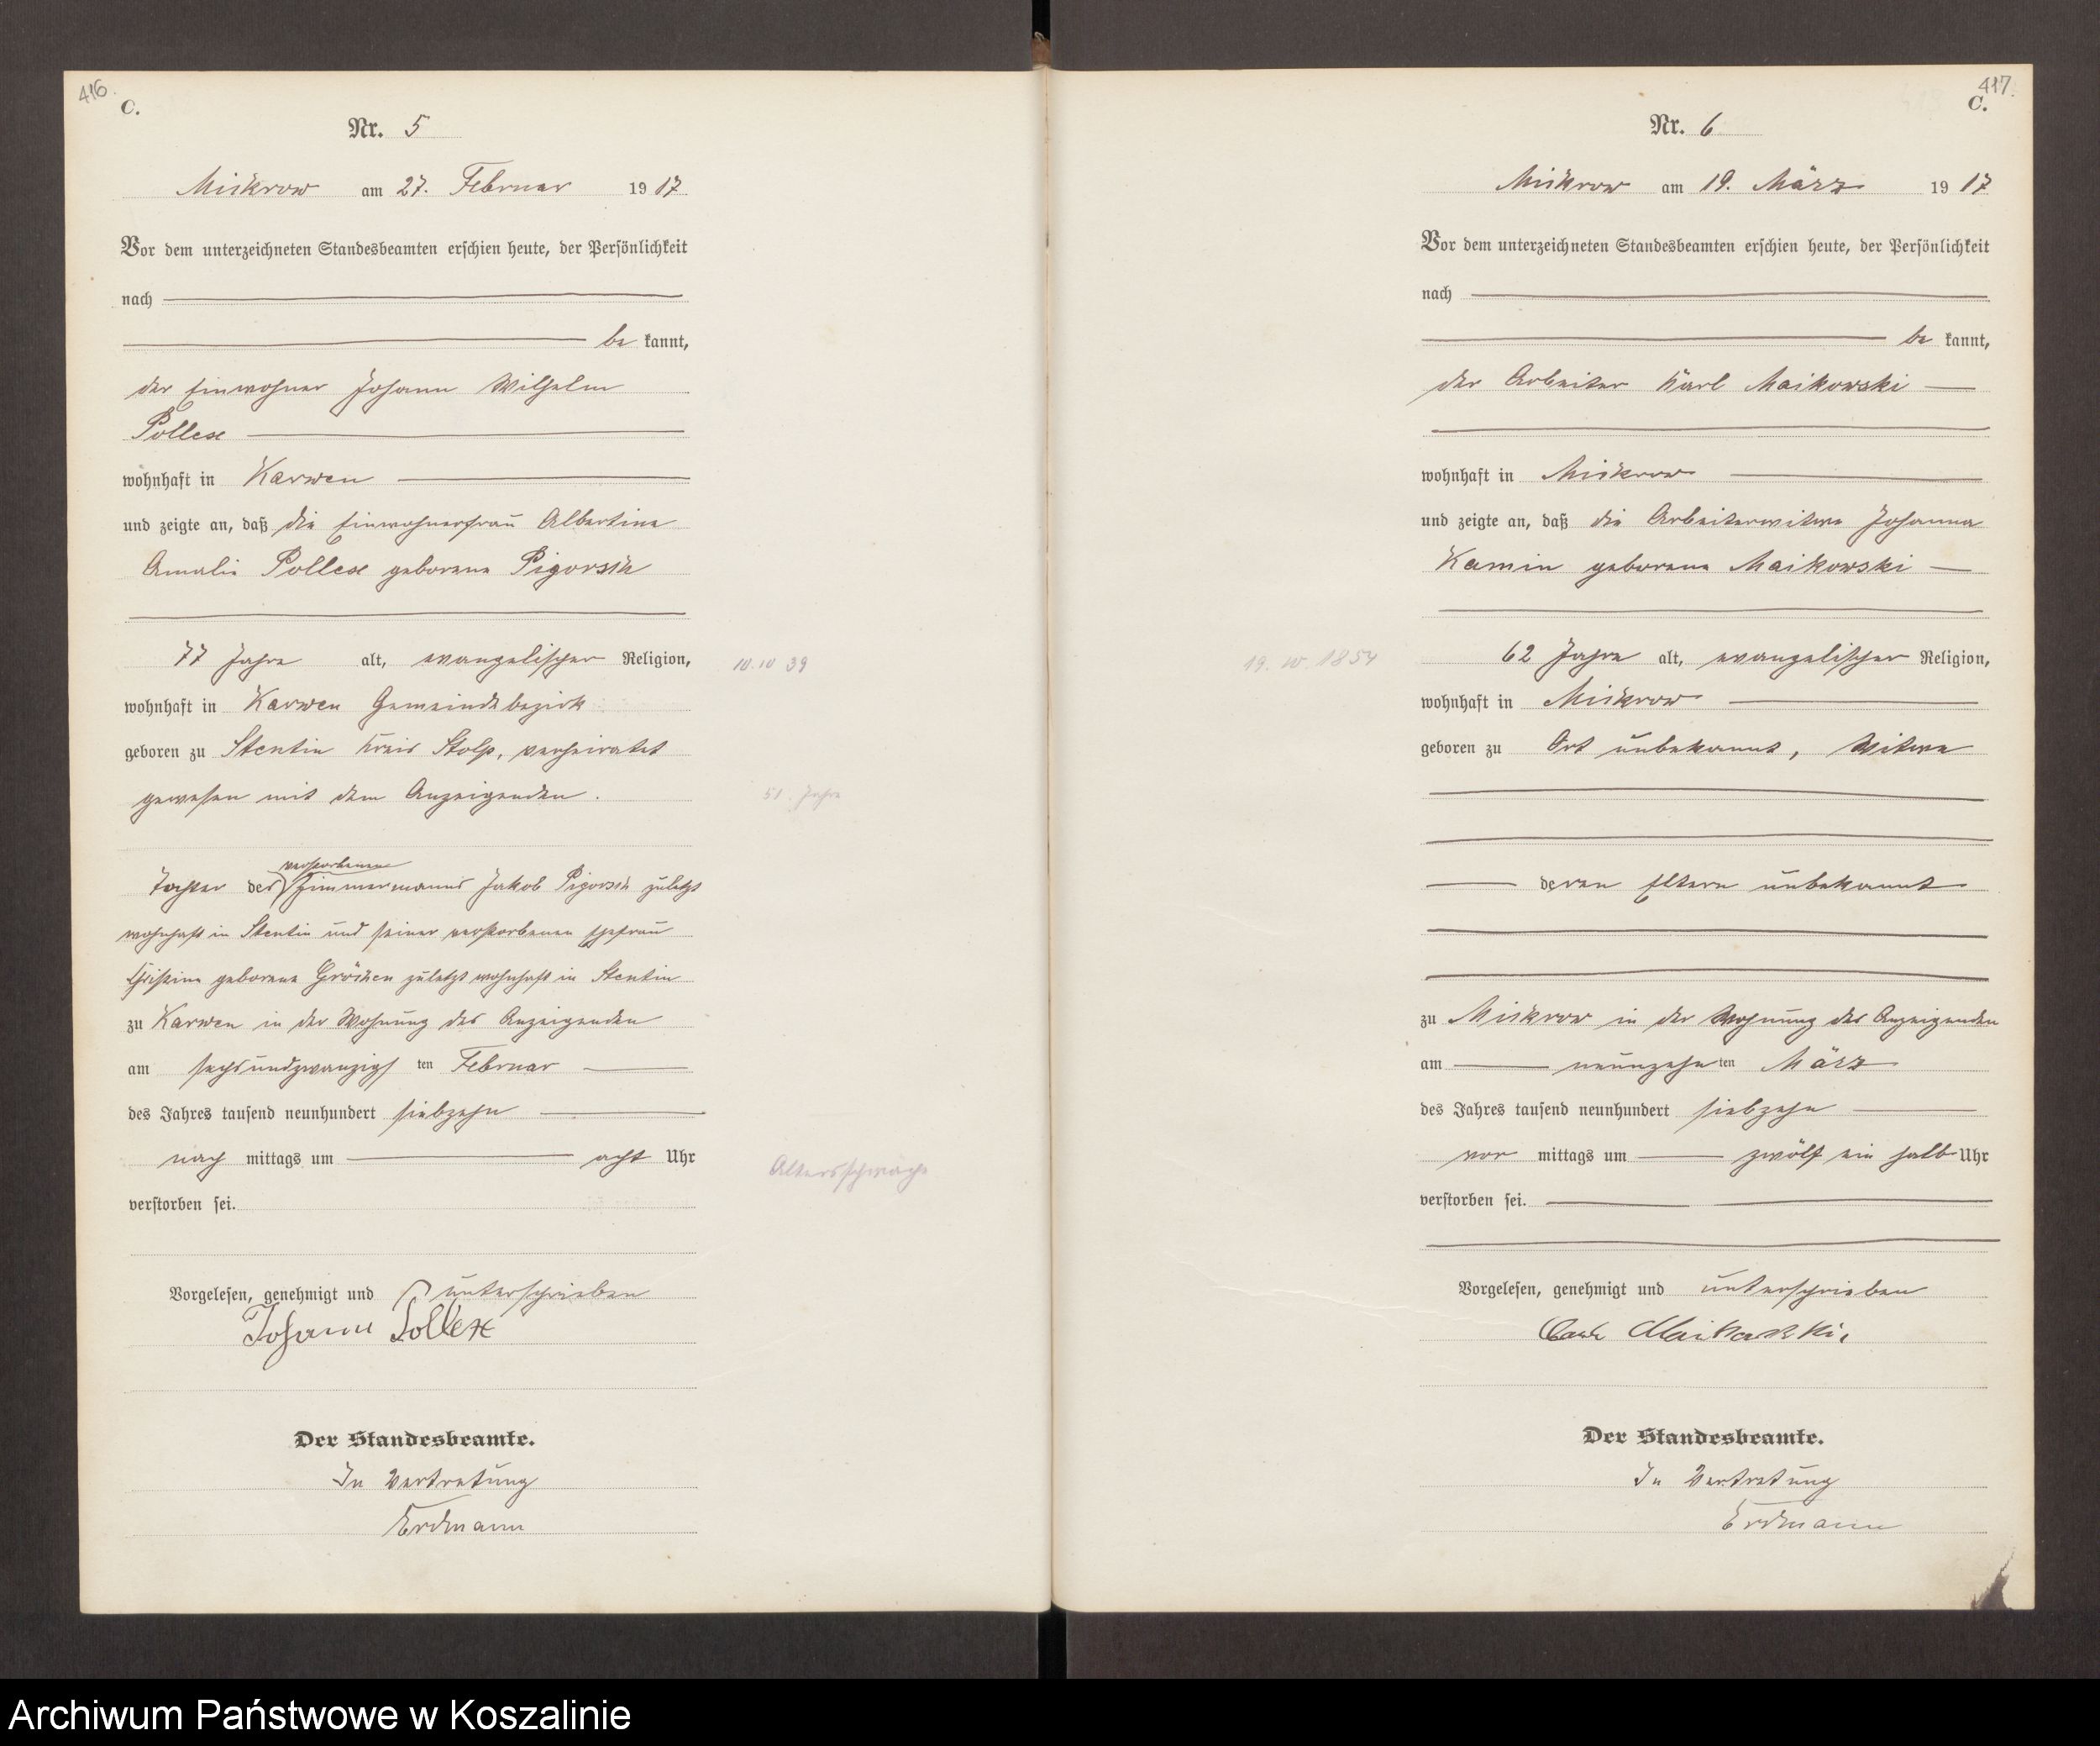 416.
C.
Nr. 5
Mickrow am 27. Februar 1917
Vor dem unterzeichneten Standesbeamten erschien heute, der Persönlichkeit
nach
be kannt,
der Einwohner Johann Wilhelm
Pollex
wohnhaft in Karwen
und zeigte an, daß die Einwohnerfrau Albertine
Amalie Pollex geborene Pigorsch
77 Jahre alt, evangelischer Religion,
10.10 39
wohnhaft in Karwen Gemeindebezirk
geboren zu Stentin Kreis Stolp, verheiratet
gewesen mit dem Anzeigenden.
51. Jahre
verstorbenen
Tochter des Zimmermanns Jakob Pigorsch zuletzt
wohnhaft in Stentin und seiner verstorbenen Ehefrau
Christine geborene zuletzt wohnhaft in Stentin
zu Karwen in der Wohnung des Anzeigenden
am sechsundzwanzigs ten Februar
des Jahres tausend neunhundert siebzehn
nach mittags um acht Uhr
Altersschwäche
verstorben sei.
Vorgelesen, genehmigt und unterschrieben
Johann Pollex
Der Standesbeamte.
In Vertretung
Erdmann
417.
C.
Nr. 6
Mickrow am 19. März 1917
Vor dem unterzeichneten Standesbeamten erschien heute, der Persönlichkeit
nach
be kannt,
der Arbeiter Karl Maikowski
wohnhaft in Mickrow
und zeigte an, daß die Arbeiterwitwe Johanna
Kamin geborene Maikowski
62 Jahre alt, evangelischer Religion,
19. 10. 1854
wohnhaft in Mickrow
geboren zu Ort unbekannt, Witwe
deren Eltern unbekannt
zu Mickrow in der Wohnung des Anzeigenden
am neunzehn ten März
des Jahres tausend neunhundert siebzehn
vor mittags um zwölf ein halb Uhr
verstorben sei.
Vorgelesen, genehmigt und unterschrieben
Maikowski
Der Standesbeamte.
In Vertretung
Erdmann
Archiwum Państwowe w Koszalinie